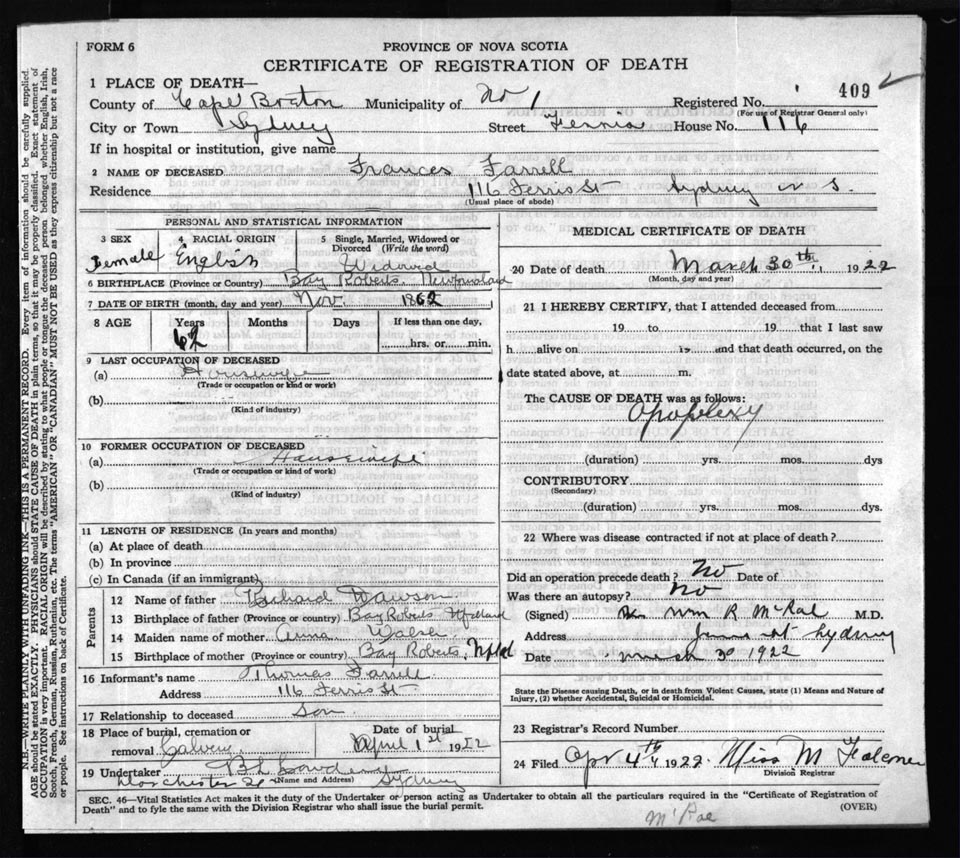 FORM 6
PROVINCE OF NOVA SCOTIA
CERTIFICATE OF REGISTRATION OF DEATH
409
1 PLACE OF DEATH—
County of Cape Breton Municipality of No 1 Registered No.
(For use of Registrar General only)
City or Town Sydney Street Ferris House No. 116
If in hospital or institution, give name
2 NAME OF DECEASED Frances Farrell
Residence 116 Ferris St Sydney N S.
(Usual place of abode)
PERSONAL AND STATISTICAL INFORMATION
3 SEX Female
4 RACIAL ORIGIN English
5 Single, Married, Widowed or Divorced (Write the word) Widowed
6 BIRTHPLACE (Province or Country) Bay Roberts. Newfoundland
7 DATE OF BIRTH (month, day and year) Nov. 1862
8 AGE Years Months Days If less than one day,
62 hrs. or min.
9 LAST OCCUPATION OF DECEASED
(a) Housewife
(Trade or occupation or kind or work)
(b)
(Kind of industry)
10 FORMER OCCUPATION OF DECEASED
(a) Housewife
(Trade or occupation or kind of work)
(b)
(Kind of industry)
11 LENGTH OF RESIDENCE (In years and months)
(a) At place of death
(b) In province
(c) In Canada (if an immigrant)
Parents
12 Name of father Richard Dawson
13 Birthplace of father (Province or country) Bay Roberts Nfland
14 Maiden name of mother Anna Walsh
15 Birthplace of mother (Province or country) Bay Roberts, Nfld
16 Informant's name Thomas Farrell
Address 116 Ferris St
17 Relationship to deceased son
18 Place of burial, cremation or Date of burial
removal Calvary April 1st 1922
19 Undertaker
Dorchester St (Name and Address) Sydney
MEDICAL CERTIFICATE OF DEATH
20 Date of death March 30th 1922
(Month, day and year)
21 I HEREBY CERTIFY, that I attended deceased from
19 to 19 that I last saw
h alive on 19 and that death occurred, on the
date stated above, at m.
The CAUSE OF DEATH was as follows:
Apoplexy
(duration) yrs. mos. dys
CONTRIBUTORY
(Secondary)
(duration) yrs. mos. dys.
22 Where was disease contracted if not at place of death?
Did an operation precede death? No Date of
Was there an autopsy? No
(Signed) Wm R. McRae M.D.
Address Sydney
Date March 30 1922
State the Disease causing Death, or in death from Violent Causes, state (1) Means and Nature of
Injury, (2) whether Accidental, Suicidal or Homicidal.
23 Registrar's Record Number
24 Filed Apr 4th 1922 Miss M Falconer
Division Registrar
SEC. 46—Vital Statistics Act makes it the duty of the Undertaker or person acting as Undertaker to obtain all the particulars required in the "Certificate of Registration of
Death" and to fyle the same with the Division Registrar who shall issue the burial permit. (OVER)
McRae
N.B.—WRITE PLAINLY WITH UNFADING INK—THIS IS A PERMANENT RECORD. Every item of information should be carefully supplied.
AGE should be stated EXACTLY. PHYSICIANS should STATE CAUSE OF DEATH in plain terms, so that it may be properly classified. Exact statement of
OCCUPATION is very important. RACIAL ORIGIN will be described by stating to what people or tongue the deceased person belonged, whether English, Irish,
Scotch, French, German, Russian, Ruthenian, etc. The terms "AMERICAN" OR "CANADIAN" MUST NOT BE USED as they express citizenship but not a race
or people. See instructions on back of Certificate.